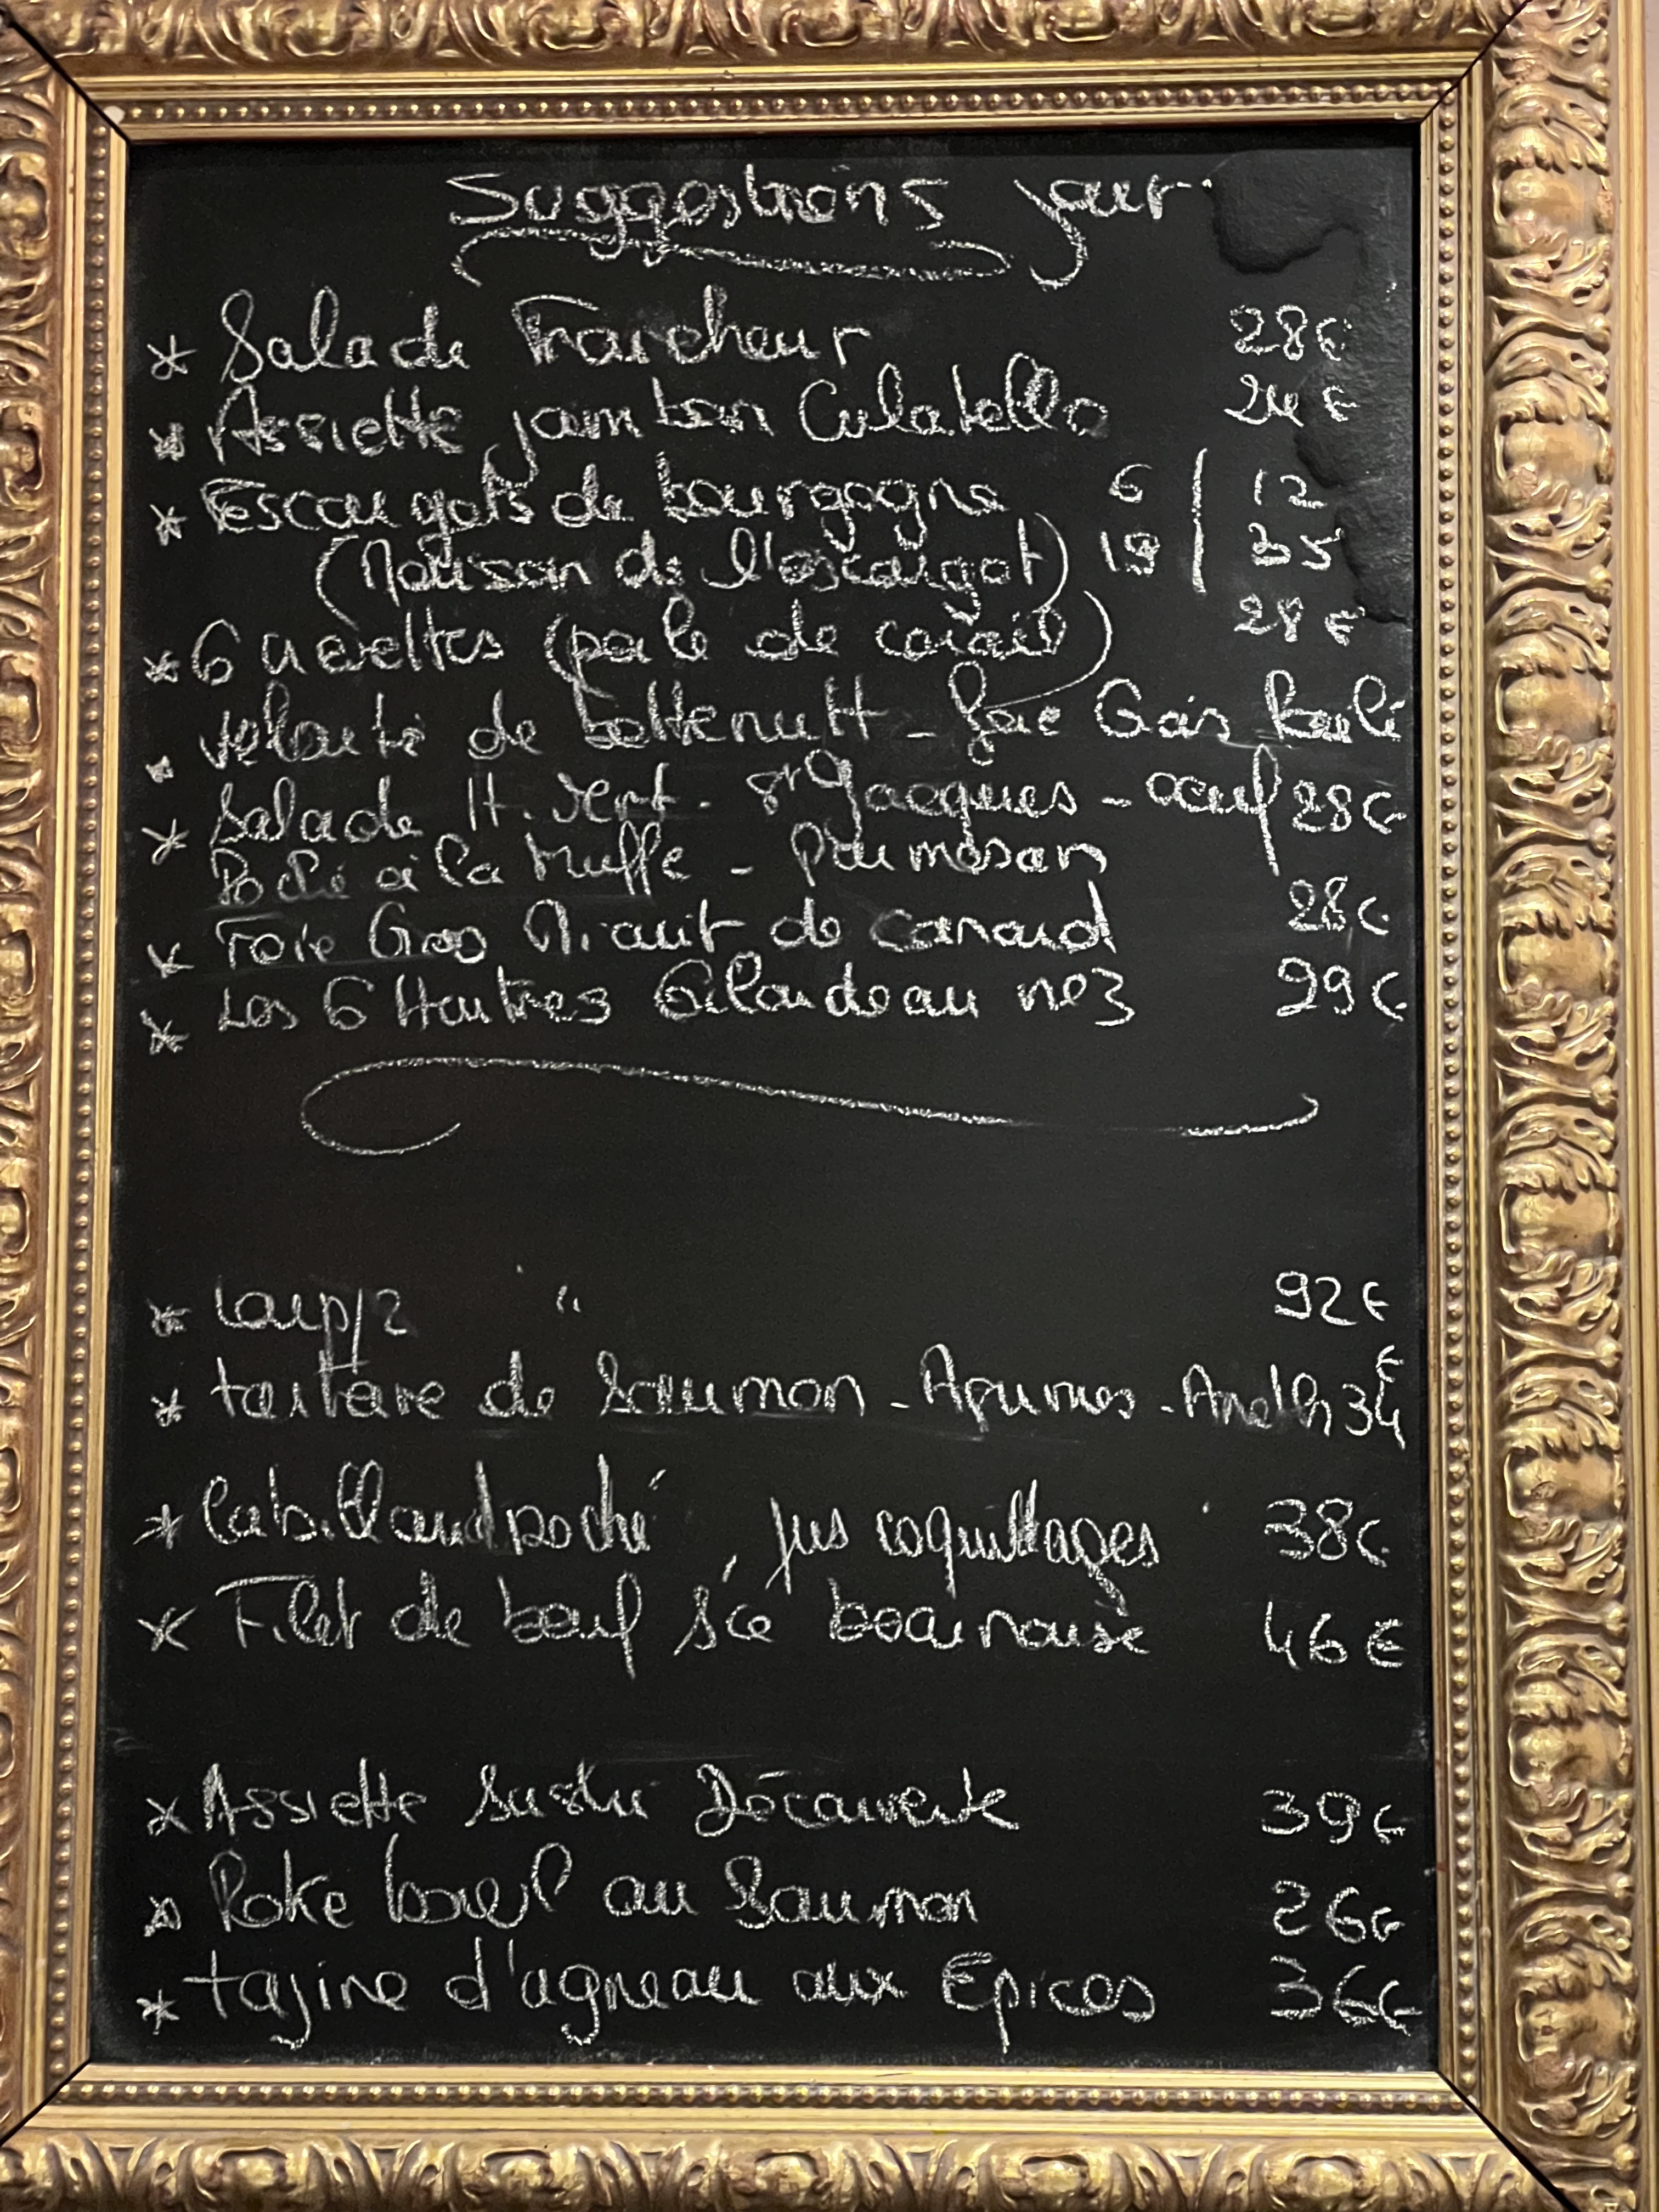 Suggestions jour
* Salade Fraicheur 28€
* Assiette jambon Culatello 24€
* Escargots de bourgogne 6 | 12
(Maison de l'escargot) 19 | 35
* 6 crevettes (perle de corail) 28€
* velouté de bottenutt - foie Gras Poelé
* Salade H. vert - St Jacques - oeuf 28€
Poché à la truffe - Parmesan
* Foie Gras Mi cuit de canard 28€
* Les 6 Huitres Gilardeau n°3 29€
* Loup/2 " 92€
* tartare de Saumon - Agrumes - Aneth 34€
* Cabillaud poché, jus coquillages 38€
* Filet de bœuf s/ce bearnaise 46€
* Assiette Sushi Découverte 39€
* Poke bowl au Saumon 26€
* tajine d'agneau aux Epices 36€